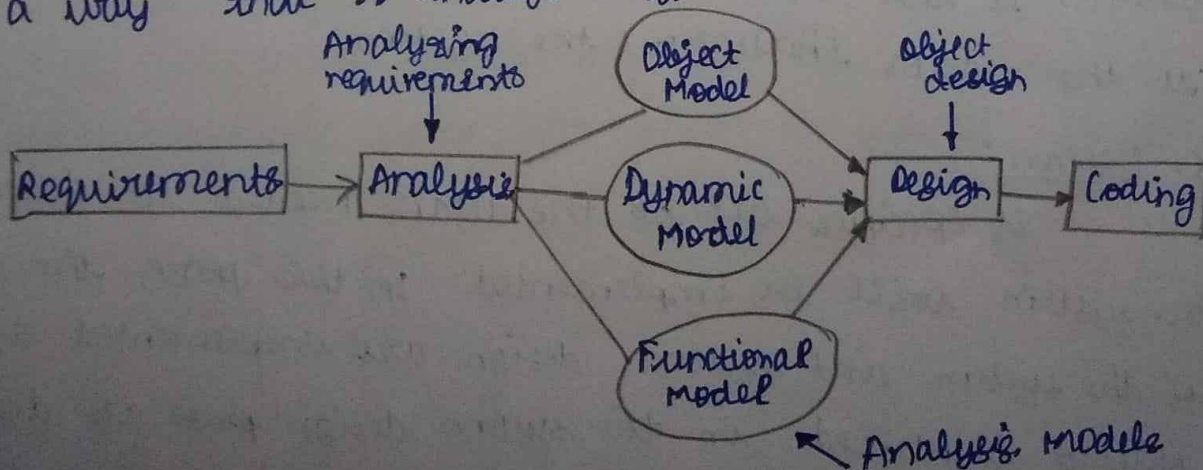 a way that is
Analyzing
requirements
Object
Model
Object
design
Requirements
Analysis
Dynamic
Model
Design
Coding
Functional
Model
Analysis Models